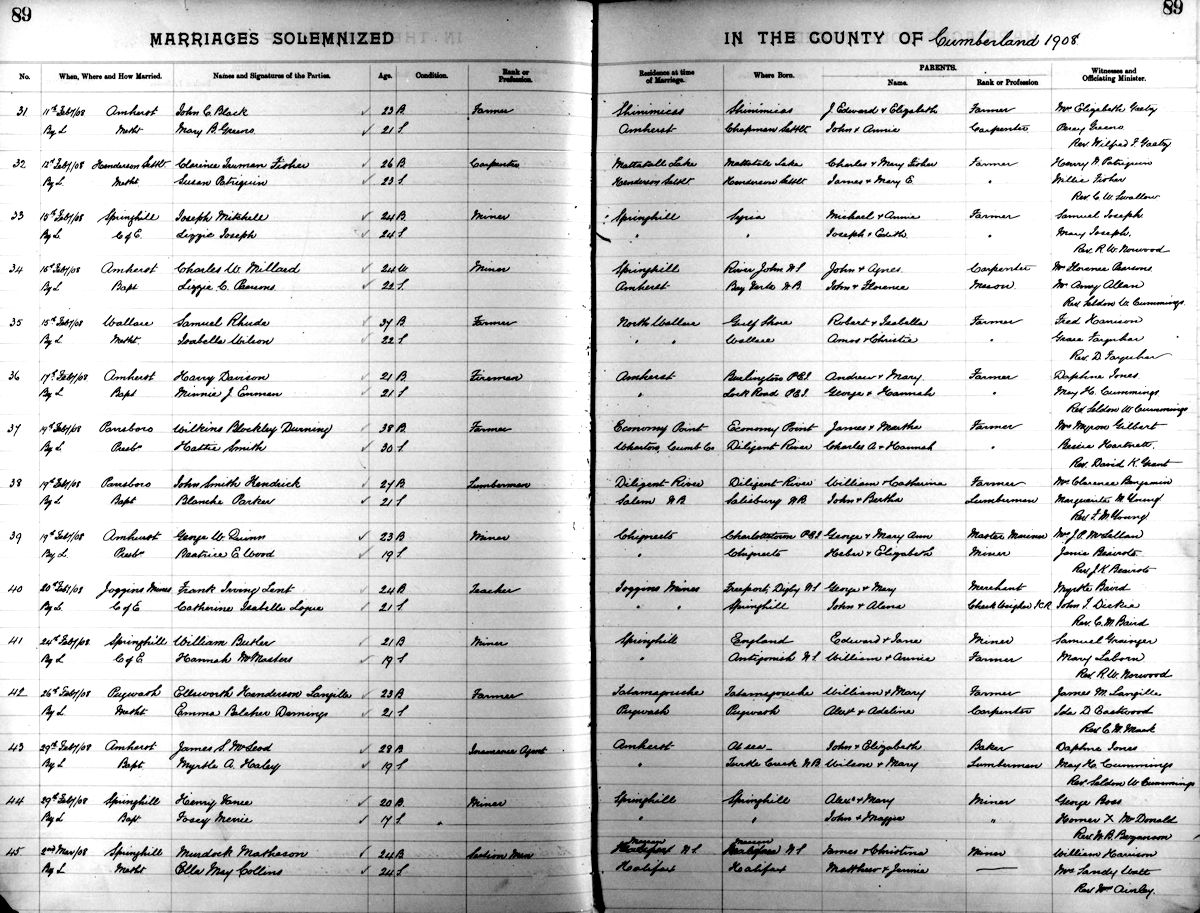 89 89
MARRIAGES SOLEMNIZED IN THE COUNTY OF Cumberland 1908
No. When, Where and How Married. Names and Signatures of the Parties. Age. Condition. Rank or Profession. Residence at time of Marriage. Where Born. PARENTS. Name. Rank or Profession Witnesses and Officiating Minister.
31 11th Feby/08 Amherst John C. Black 23 B Farmer Shinimicas Shinimicas J Edward & Elizabeth Farmer Mrs Elizabeth Gaetz
By L Metht Mary B Greeno 21 S Amherst Chapman Settlt John & Annie Carpenter Percy Greeno
Rev Wilfred F. Gaetz
32 12th Feby/08 Henderson Settlt Clarence Truman Fisher 26 B Carpenter Mattatall Lake Mattatall Lake Charles & Mary Fisher Farmer Harry N Patriquin
By L Metht Susan Patriquin 23 S Henderson Settlt Henderson Settlt James & Mary E. " Willie Fisher
Rev C. W. Swallow
33 15th Feby/08 Springhill Joseph Mitchell 24 B Miner Springhill Syria Michael & Annie Farmer Samuel Joseph
By L C of E. Lizzie Joseph 24 S " " Joseph & Edith " Mary Joseph.
Rev R. W. Norwood
34 15th Feby/08 Amherst Charles W. Millard 24 W Miner Springhill River John N S John & Agnes Carpenter Mrs Florence Pearsons
By L Bapt Lizzie C. Pearsons 22 S Amherst Bay Verte N B John & Florence Mason Mrs Amy Allan
Rev Seldon W. Cummings
35 15th Feby/08 Wallace Samuel Rhude 37 B Farmer North Wallace Gulf Shore Robert & Isabella Farmer Fred Harrison
By L Metht Isabelle Wilson 22 S " " Wallace Amos & Christie " Grace Farquhar
Rev. D. Farquhar
36 17th Feby/08 Amherst Harry Davison 21 B Fireman Amherst Burlington P.E.I Andrew & Mary Farmer Daphne Jones
By L Bapt Minnie J. Enman 21 S " Lork Road P.E.I. George & Hannah " May H. Cummings
Rev Seldon W Cummings
37 19th Feby/08 Parrsboro Wilkins Blockley Durning 38 B Farmer Economy Point Economy Point James & Martha Farmer Mrs Myrow Gilbert
By L Presb Hattie Smith 30 S Wharton, Cumb Co Diligent River Charles A & Hannah " Bessie Hartnett.
Rev. David K. Grant
38 19th Feby/08 Parrsboro John Smith Hendrick 27 B Lumberman Diligent River Diligent River William & Catherine Farmer Mrs Clarence Benjamin
By L Bapt Blanche Parker 21 S Salem N B Salisbury N B John & Bertha Lumberman Marguerite M Young
Rev F. M Young
39 19th Feby/08 Amherst George W. Quinn 23 B Miner Chignecto Charlottetown P E I George & Mary Ann Master Mariner Mrs J. P. McLellan
By L Presb Beatrice E. Wood 19 S " Chignecto Heber & Elizabeth Miner Janie Beairsto
Rev J. K. Beairsto
40 20th Feby/08 Joggins Mines Frank Irving Lent 24 B Teacher Joggins Mines Freeport, Digby N S George & Mary Merchant Myrtle Baird
By L C of E Catherine Isabelle Logue 21 S " " Springhill John & Alena Check Weigher John F. Dickie
Rev. C. M. Baird
41 24th Feby/08 Springhill William Butler 21 B Miner Springhill England Edward & Jane Miner Samuel Grainger
By L C of E Hannah McMasters 19 S " Antigonish N S William & Annie Farmer Mary Laborn
Rev R. W. Norwood
42 26th Feby/08 Pugwash Ellsworth Henderson Langille 23 B Farmer Tatamagouche Tatamagouche William & Mary Farmer James M. Langille
By L Metht Emma Belcher Demings 21 S Pugwash Pugwash Alext & Adeline Carpenter Ida D Eastwood
Rev C. M. Mack
43 29th Feby/08 Amherst James S. McLeod 28 B Insurance Agent Amherst At sea John & Elizabeth Baker Daphne Jones
By L Bapt. Myrtle A. Haley 19 S " Turtle Creek N B Wilson & Mary Lumberman May H. Cummings
Rev Seldon W Cummings
44 29th Feby/08 Springhill Henry Vance 20 B Miner Springhill Springhill Alexr & Mary Miner George Boss
By L Bapt Tosey Merrie 17 S " " John & Maggie " Homer X McDonald
Rev H. B. Bezanson
45 2nd Mar/08 Springhill Murdock Matheson 24 B Section Man N S N S James & Christina Miner William Harrison
By L Metht Ella May Collins 24 S Halifax Halifax Matthew & Jennie — Mrs Sandy Watt
Rev Wm Ainley.